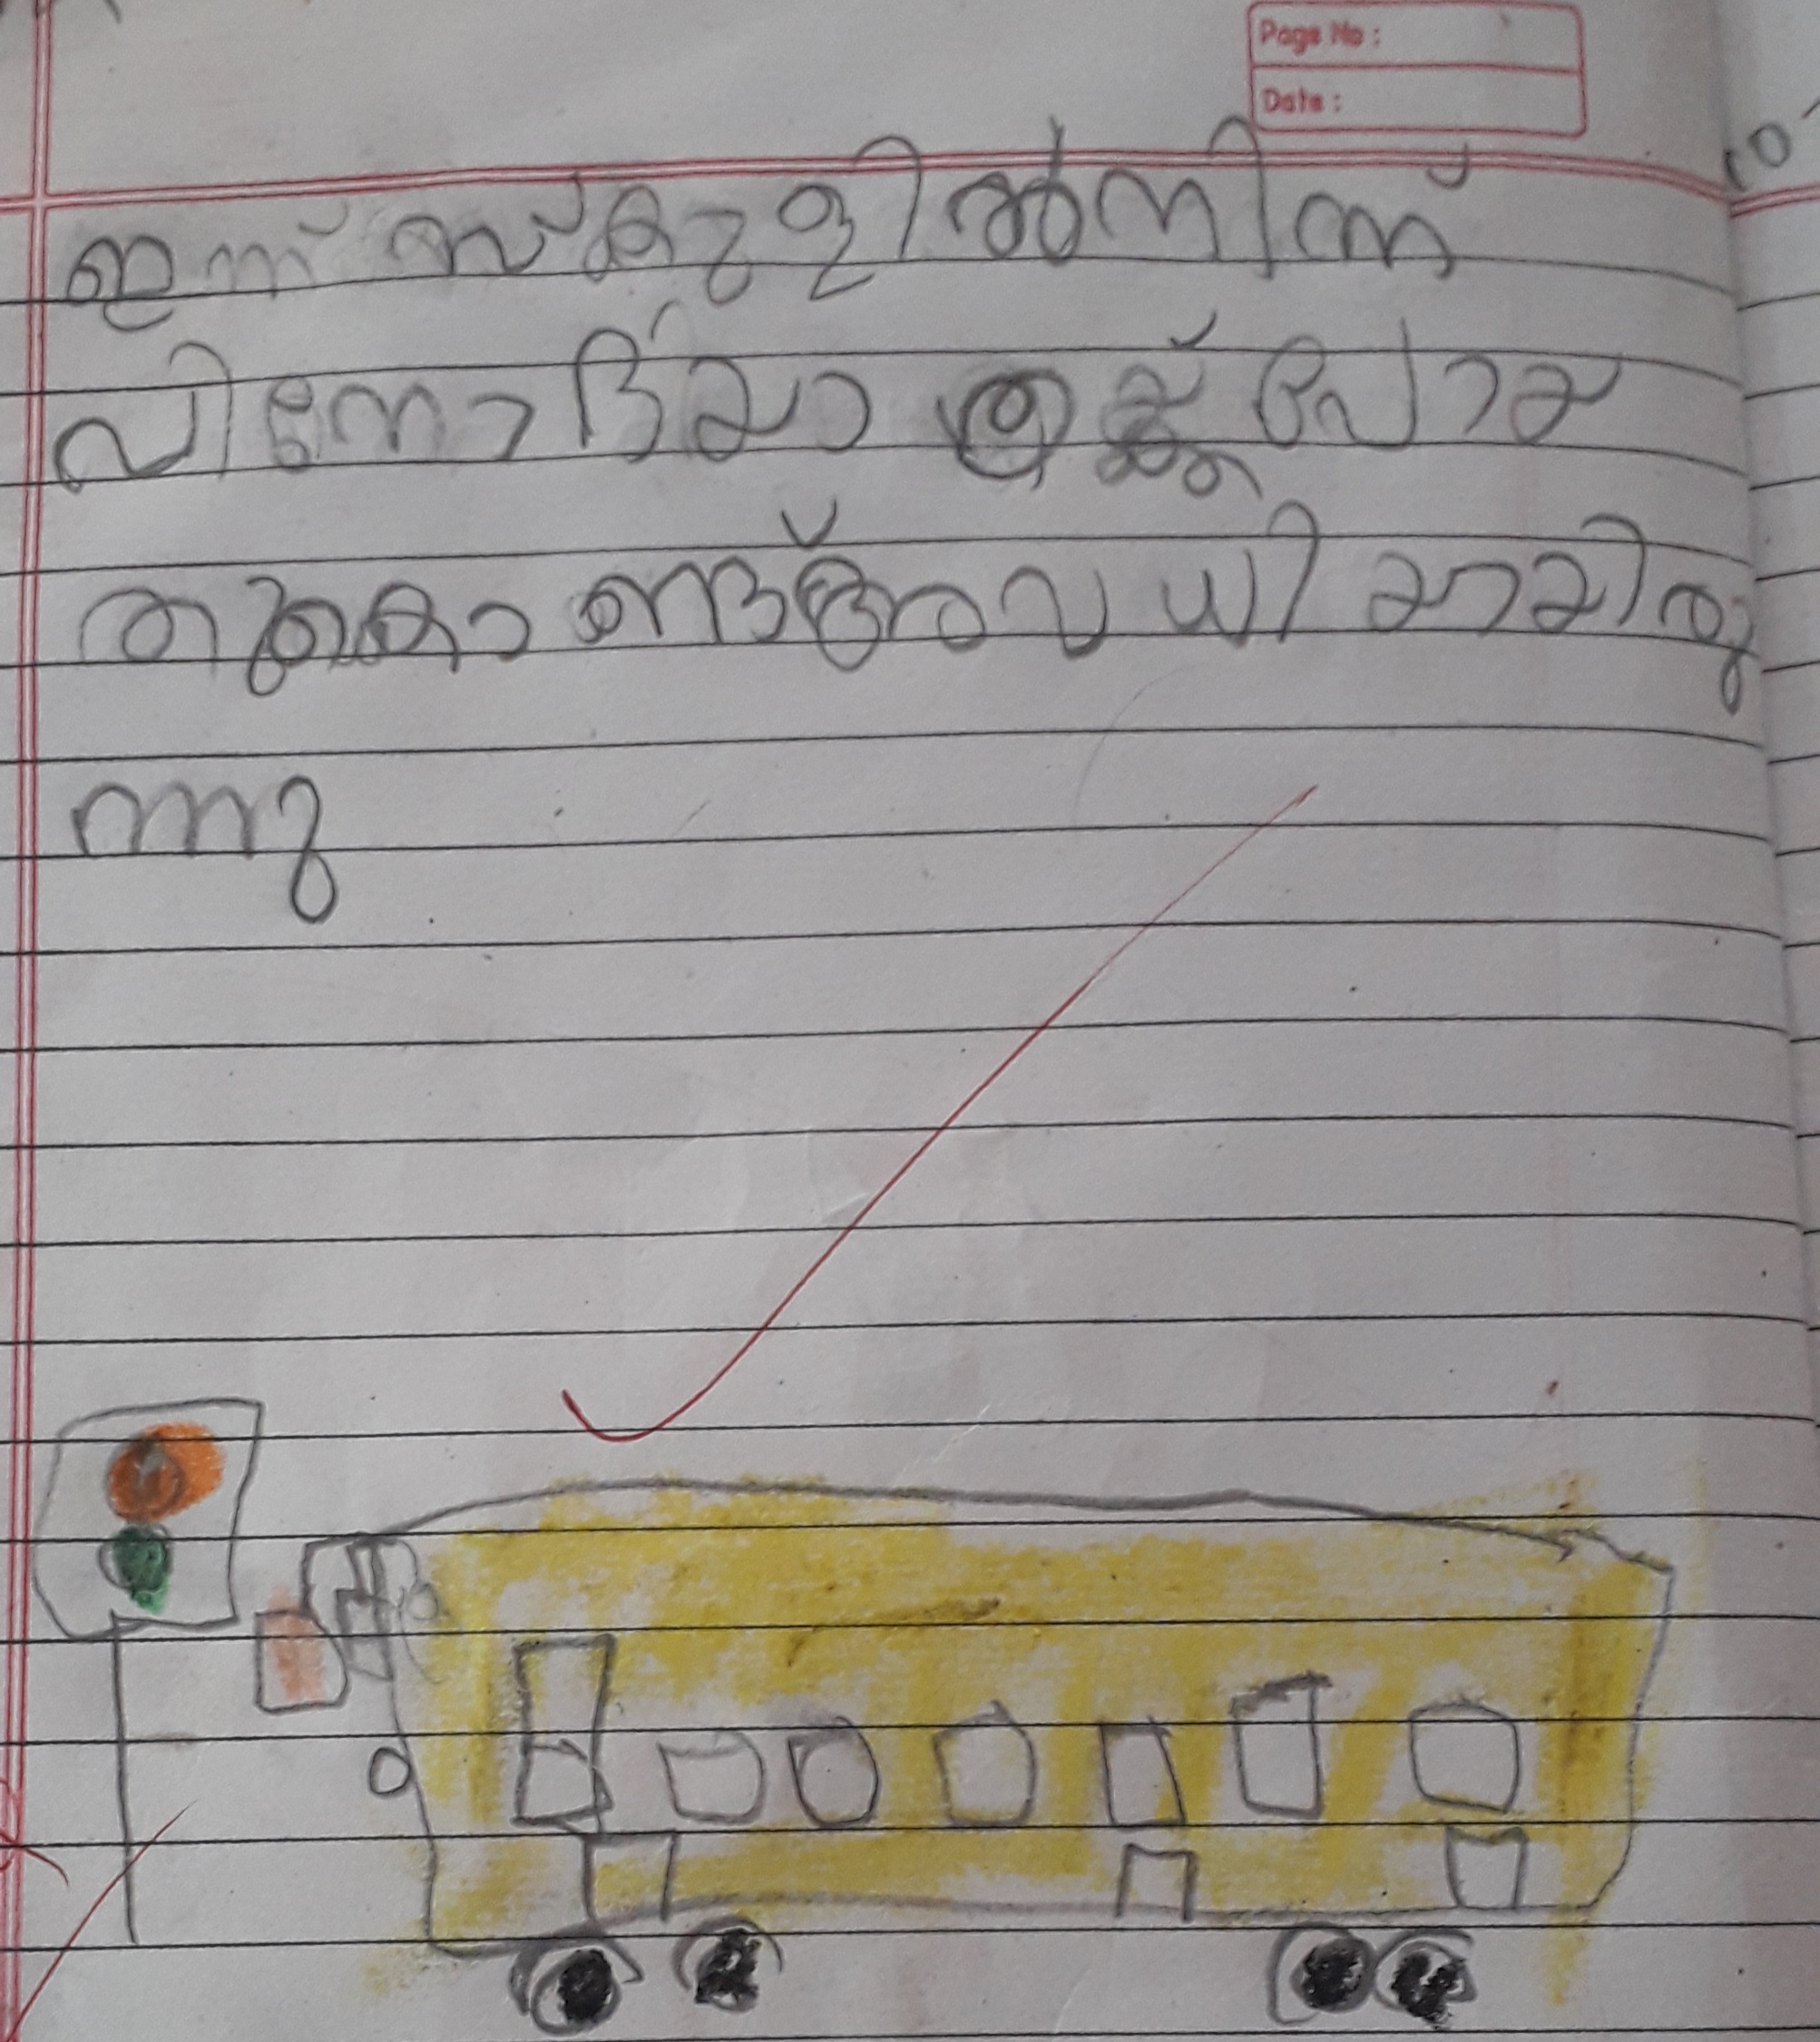 Page No :
Date :
ഇന്ന് സ്കുളിൽനിന്ന്
വിനോദയാത്രയ്ക്ക് പോയ
തുകൊണ്ട് അവധിയായിരു
ന്നു